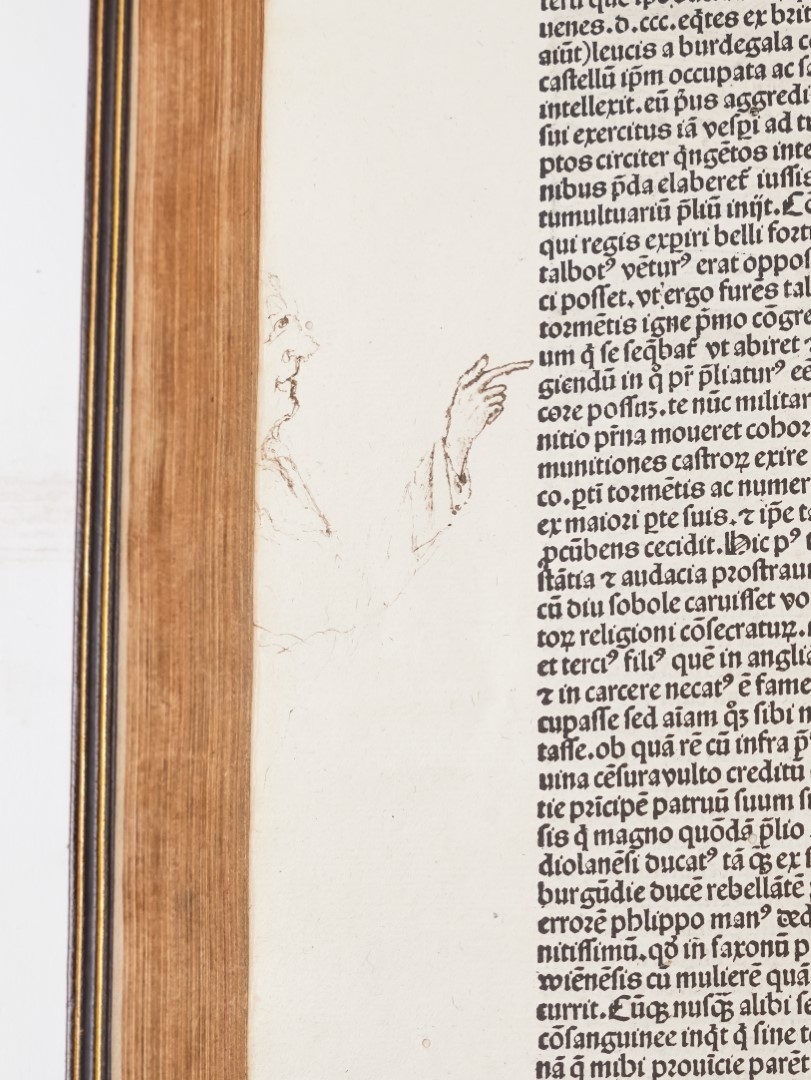 uenes.d.ccc.eq̄tes ex brit
aiūt)leucis a burdegala c
castellū ip̄m occupata ac s
intellexit.eū p̄us aggredi
sui exercitus iā vesp̄i ad t
ptos circiter q̄ngētos inte
nibus p̄da elaberet᷑ iussis
tumultuariū p̄liū inijt.Cō
qui regis exꝑiri belli fort
talbotꝰ vētur̄ꝰ erat oppos
ci posset.vt ergo furēs tal
tormētis igne p̄mo cōgre
um q̄ se seq̄bat᷑ vt abiret ⁊
giendū in q̊ pr̄ p̄liaturꝰ eē
core possuꝫ.te nūc militar
nitio pr̄na moueret cohor
munitiones castroꝝ exire
co.ꝑti tormētis ac numer
ex maiori ꝑte suis.⁊ ip̄e t
ꝓcūbens cecidit.Hic pꝰ
stātia ⁊ audacia prostrau
cū diu sobole caruisset vo
toꝝ religioni cōsecratuꝝ.
et terciꝰ filiꝰ quē in angli
⁊ in carcere necatꝰ ē fame
cupasse sed aīam q̊ꝫ sibi
tasse.ob quā rē cū infra p̄
uina cēsura vulto creditū
tie prīcipē patruū suum s
sis q̄ magno quōdā p̄lio
diolanēsi ducatꝰ tā qꝫ ex
burgūdie ducē rebellātē
errorē phlippo manꝰ ded
nitissimū.qd̄ in saxonū p
wiēnēsis cū mulierē quā
currit.Cūqꝫ nusq̄ꝫ alibi se
cōsanguinee inq̄t q̄ sine t
nā q̄ mihi prouīcie parēt